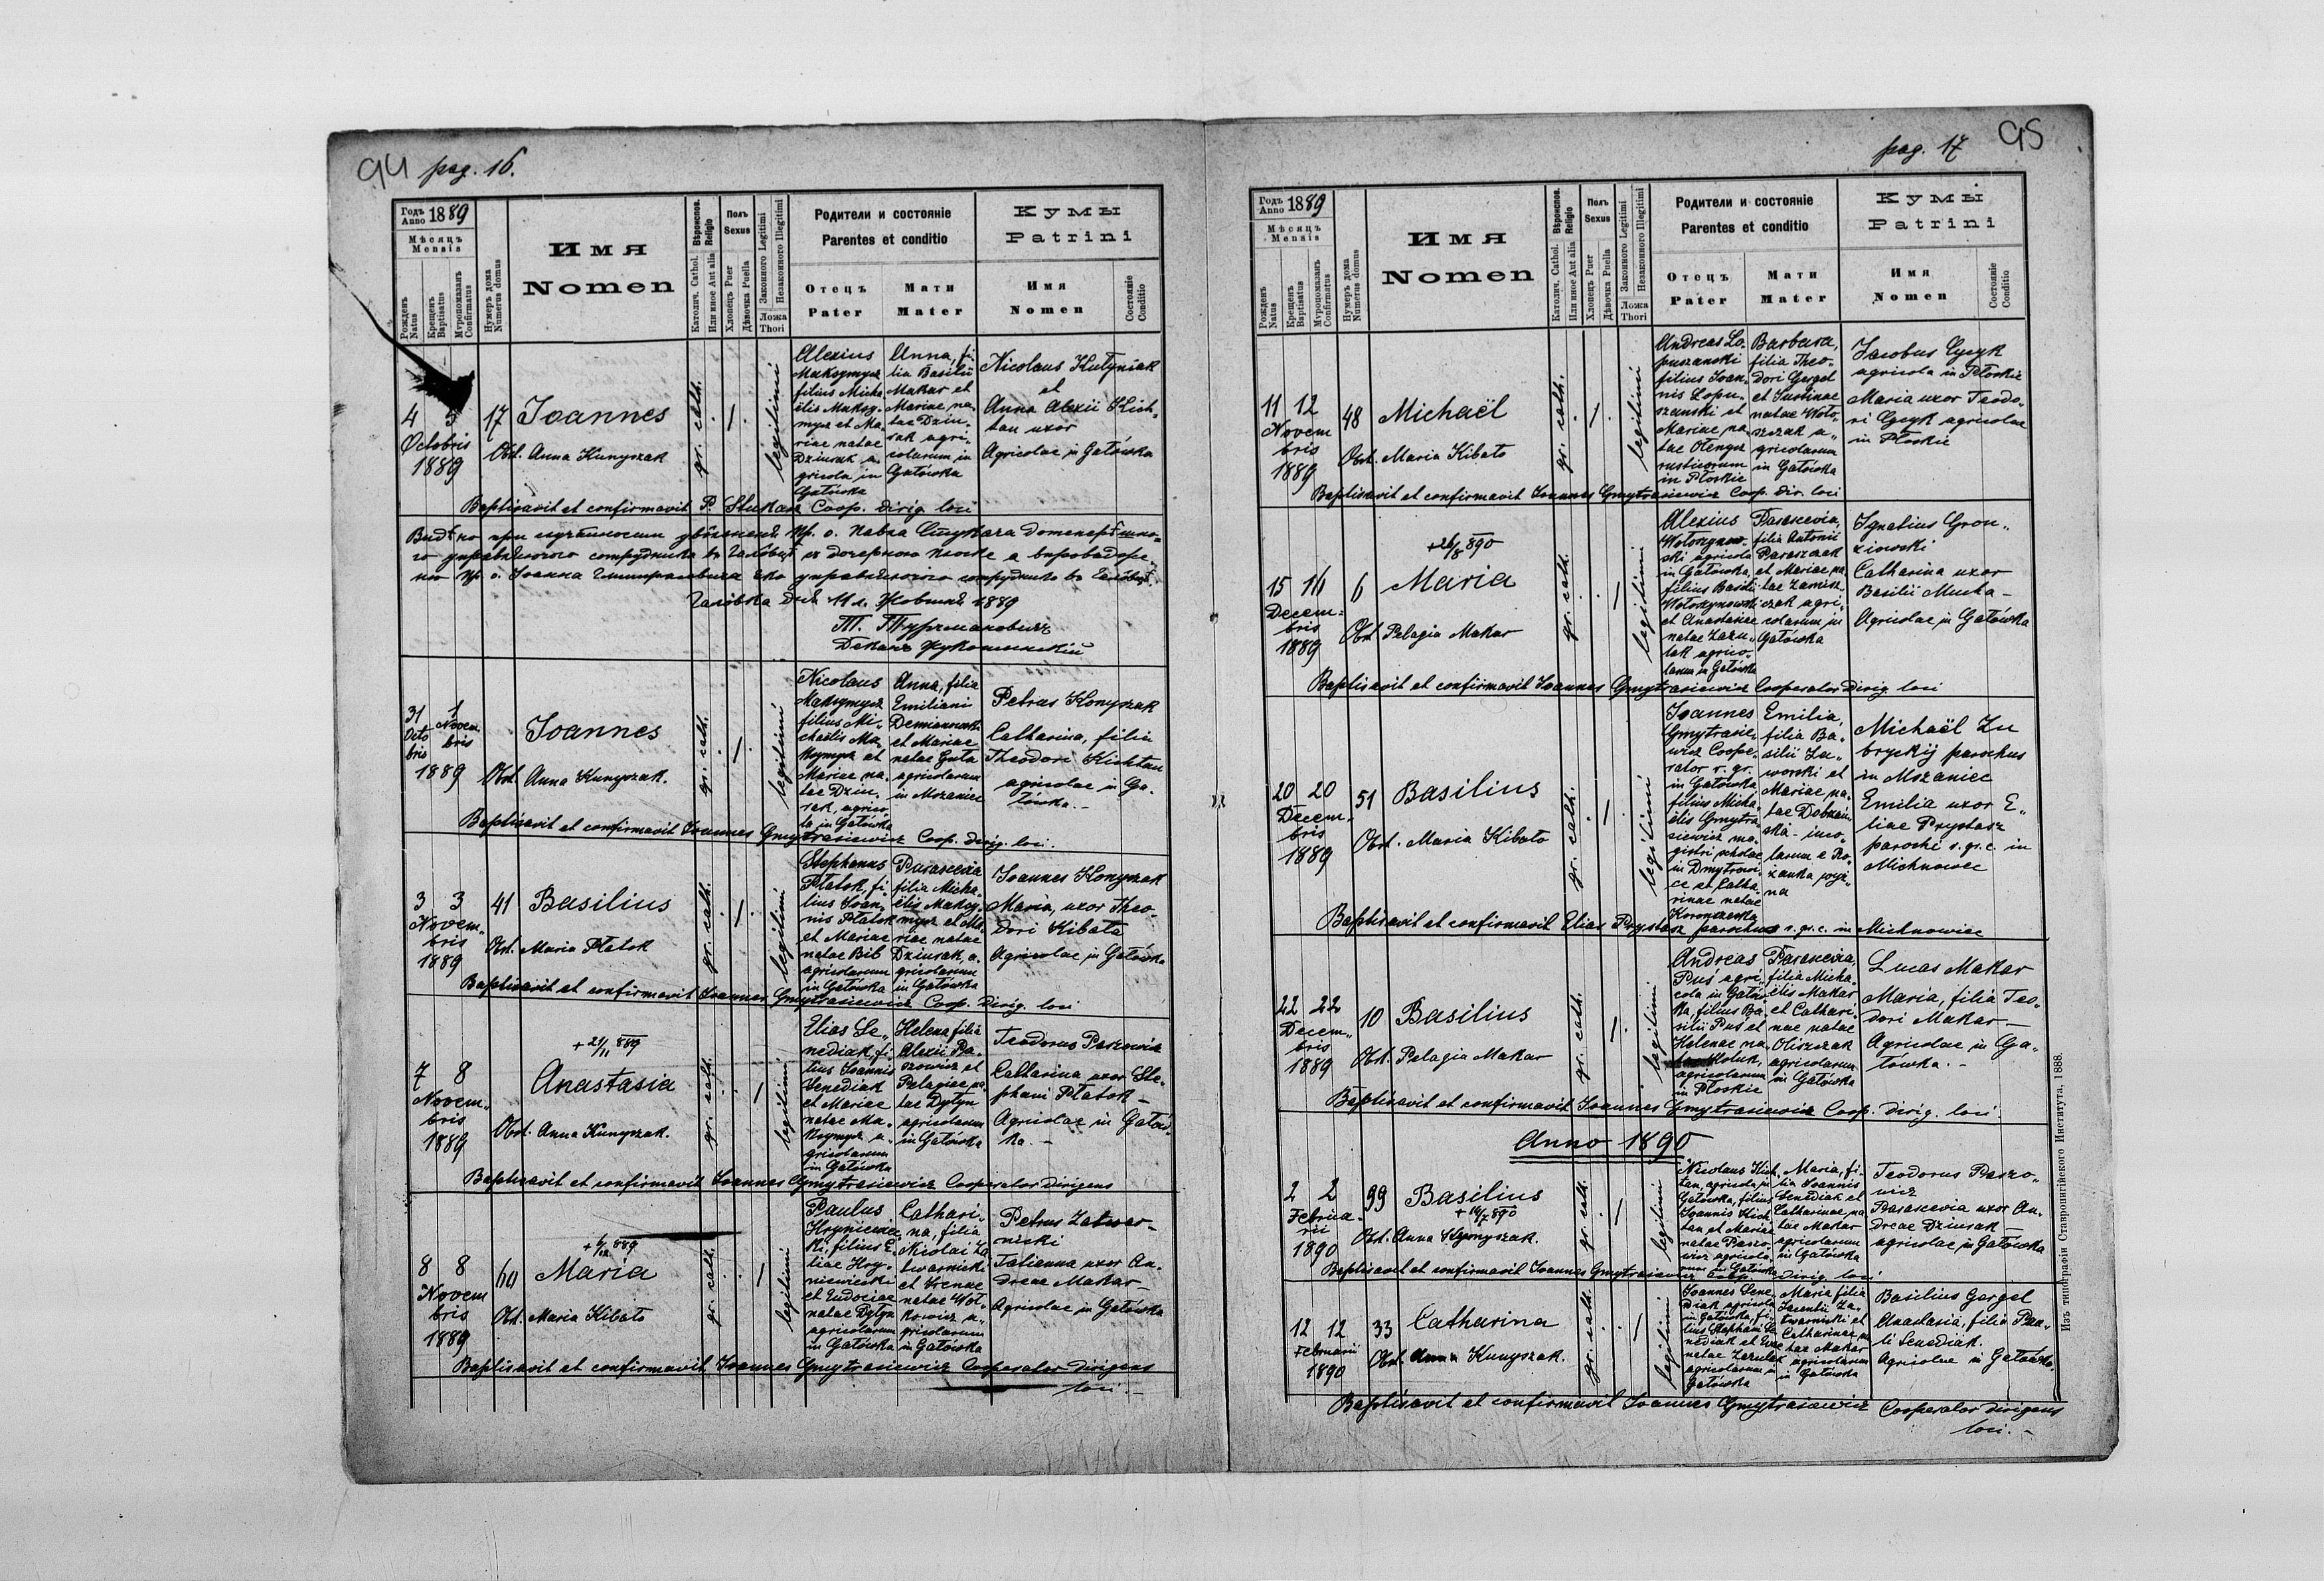 94 pag. 16.
Годъ Anno 1889
Мѣсяцъ
Mensis
Рожденъ Natus
Крещенъ Baptisatus
Муропомазанъ Confirmatus
Нумеръ дома Numerus domus
Имя
Nomen
Вѣроиспов. Religio
Католич. Cathol.
Или иное Aut alia
Полъ
Sexus
Хлопецъ Puer
Дѣвочка Puella
Законного Legitimi
Незаконного Illegitimi
Ложа
Thori
Родители и состоянiе
Parentes et conditio
Отецъ
Pater
Мати
Mater
Кумы
Patrini
Имя
Nomen
Состоянiе
Conditio
4 5
Octobris
1889
17
Joannes
Obst. Anna Kunyszak
gr. cath.
legitimi
Alexius
Maksymycz
filius Micha
ëlis Maksy-
mycz et Ma-
riae natae
Dziurak a-
gricola in
Gałówka
Anna, fi-
lia Basilii
Makar et
Mariae na-
tae Dziu-
rak agri-
colarum in
Gałówka
Nicolaus Kutyniak
et
Anna Alexii Kich-
tan uxor
Agricolae in Gałówka
Baptisavit et confirmavit P. Stukacz Coop. dirig. loci
Галôвка дня 11 л. Жовтня 1889
31 1
Octo Novem
bris bris
1889
Joannes
Obst. Anna Kunyszak.
gr. cath.
legitimi
Nicolaus
Maksymycz
filius Mi-
chaëlis Ma-
ksymycz et
Mariae na-
tae Dziu-
rak, agrico-
la in Gałówka
Anna, filia
Emiliani
Demianowski
et Mariae
natae Guta
agricolarum
in Mszaniec
Petrus Konyszak
Catharina, filia
Theodori Kichtan
agricolae in Ga-
łówka.-
Baptisavit et confirmavit Joannes Gmytrasiewicz Coop. dirig. loci.
3 3
Novem-
bris
1889
41
Basilius
Obst. Maria Płatok
gr. cath.
legitimi
Stephanus
Płatok, fi-
lius Joan-
nis Płatok
et Mariae
natae Bib
agricolarum
in Gałówka
Parascevia
filia Micha-
ëlis Maksy-
mycz et Ma-
riae natae
Dziurak, a-
gricolarum
in Gałówka
Joannes Konyszak
Maria, uxor Theo-
dori Kibata
Agricolae in Gałówka
Baptisavit et confirmavit Joannes Gmytrasiewicz Coop. dirig. loci
7 8
Novem-
bris
1889
+ 21/11 889
Anastasia
Obst. Anna Kunyszak.
gr. cath.
legitimi
Elias Se-
nediak, fi-
lius Joannis
Senediak
et Mariae
natae Ma-
ksymycz a-
gricolarum
in Gałówka
Helena, filia
Alexii Pa-
szowicz et
Pelagiae na-
tae Dytyn
agricolarum
in Gałówka
Teodorus Paszowicz
Catharina uxor Ste-
phani Płatok -
Agricolae in Gałów-
ka. -
Baptisavit et confirmavit Joannes Gmytrasiewicz Cooperator dirigens
8 8
Novem
bris
1889
60
+ 6/12 889
Maria
Obst. Maria Kibato
gr. cath.
legitimi
Paulus
Hryniewiec-
ki, filius E-
liae Hry-
niewiecki
et Eudociae
natae Dytyn
agricolarum
in Gałówka
Cathari-
na, filia
Nicolai Za
twarnicki
et Irenae
natae Woł-
kowicz a-
gricolarum
in Gałówka
Petrus Zatwar-
nicki
Tatianna uxor An-
dreae Makar -
Agricolae in Gałówka
Baptisavit et confirmavit Joannes Gmytrasiewicz Cooperator dirigens
loci.-
pag. 17 95
Годъ Anno 1889
Мѣсяцъ
Mensis
Рожденъ Natus
Крещенъ Baptisatus
Муропомазанъ Confirmatus
Нумеръ дома Numerus domus
Имя
Nomen
Вѣроиспов. Religio
Католич. Cathol.
Или иное Aut alia
Полъ
Sexus
Хлопецъ Puer
Дѣвочка Puella
Законного Legitimi
Незаконного Illegitimi
Ложа
Thori
Родители и состоянiе
Parentes et conditio
Отецъ
Pater
Мати
Mater
Кумы
Patrini
Имя
Nomen
Состоянiе
Conditio
11 12
Novem
bris
1889
48
Michaël
Obst. Maria Kibato
gr. cath.
legitimi
Andreas Ło-
puszanski
filius Joan-
nis Łopu-
szanski et
Mariae na-
tae Olenycz
rusticorum
in Płoskie
Barbara,
filia Theo-
dori Gergel
et Justinae
natae Woło-
szczak a-
gricolarum
in Gałówka
Jacobus Cycyk
agricola in Płoskie
Maria uxor Teodo-
ri Cycyk agricolae
in Płoskie
Baptisavit et confirmavit Joannes Gmytrasiewicz Coop. dir. loci
15 16
Decem-
bris
1889
6
+ 26/5 890
Maria
Obst. Pelagia Makar
gr. cath.
legitimi
Alexius
Wołoszynow-
ski agricola
in Gałówka,
filius Basilii
Wołoszynowski
et Anastasiae
natae Zazu-
lak agrico-
larum in Gałówka
Parascevia,
filia Antonii
Paraszczak
et Mariae na
tae Zamisz-
czak agri-
colarum in
Gałówka
Ignatius Gron-
ziowski
Catharina uxor
Basilii Mucha -
Agricolae in Gałówka
Baptisavit et confirmavit Joannes Gmytrasiewicz Cooperator dirig. loci
20 20
Decem-
bris
1889
51
Basilius
Obst. Maria Kibato
gr. cath.
legitimi
Joannes
Gmytrasie-
wicz Coope-
rator r. gr.
in Gałówka
filius Micha-
ëlis Gmytra
siewicz ma-
gistri scholae
in Dmytrowi-
ce et Catha-
rinae natae
Emilia,
filia Ba-
silii Ja-
worski et
Mariae na-
tae Dobrzań-
ska - inco-
larum e Ro-
zanka wyż-
na
Michaël Zu
bryckij parochus
in Mszaniec
Emilia uxor E-
liae Prystasz
parochi r. gr. c. in
Michnowiec
Baptisavit et confirmavit Elias Prystasz parochus r. gr. c. in Michnowiec
22 22
Decem-
bris
1889
10
Basilius
Obst. Pelagia Makar
gr. cath.
legitimi
Andreas
Puś agri-
cola in Gałów
ka, filius Ba-
silii Puś et
Helenae na-
agricolarum
in Płoskie
Parascevia,
filia Micha-
ëlis Makar
et Cathari-
nae natae
Oliszczak
agricolarum
in Gałówka
Lucas Makar
Maria, filia Teo-
dori Makar -
Agricolae in Ga-
łówka. -
Baptisavit et confirmavit Joannes Gmytrasiewicz Coop. dirig. loci
Anno 1890
2 2
Februa-
rii
1890
99
Basilius
+ 14/7 890
Obst. Anna Kunyszak.
gr. cath.
legitimi
Nicolaus Kich
tan, agricola in
Gałówka, filius
Joannis Kich-
tan et Mariae
natae Paszo-
wicz agricola-
rum in Gałówka
Maria, fi-
lia Joannis
Senediak et
Catharinae na-
tae Makar
agricolarum
in Gałówka
Teodorus Paszo-
wicz
Parascevia uxor An-
dreae Dziurak -
agricolae in Gałówka
Baptisavit et confirmavit Joannes Gmytrasiewicz Coop. dirig. loci
12 12
Februarii
1890
33
Catharina
Obst. Anna Kunyszak.
gr. cath.
legitimi
Joannes Sene-
diak agricola
in Gałówka, fi-
lius Stephani Se
nediak et Evae
natae Zazulak
agricolarum in
Gałówka
Maria filia
Jacentii Za-
twarnicki et
Catharinae na
tae Makar
agricolarum
in Gałówka
Basilius Gergel
Anastasia, filia Pau-
li Senediak.
Agricolae in Gałówka.
Baptisavit et confirmavit Joannes Gmytrasiewicz Cooperator dirigens
loci. -
Изъ типографiи Ставропигiйского Института, 1888.